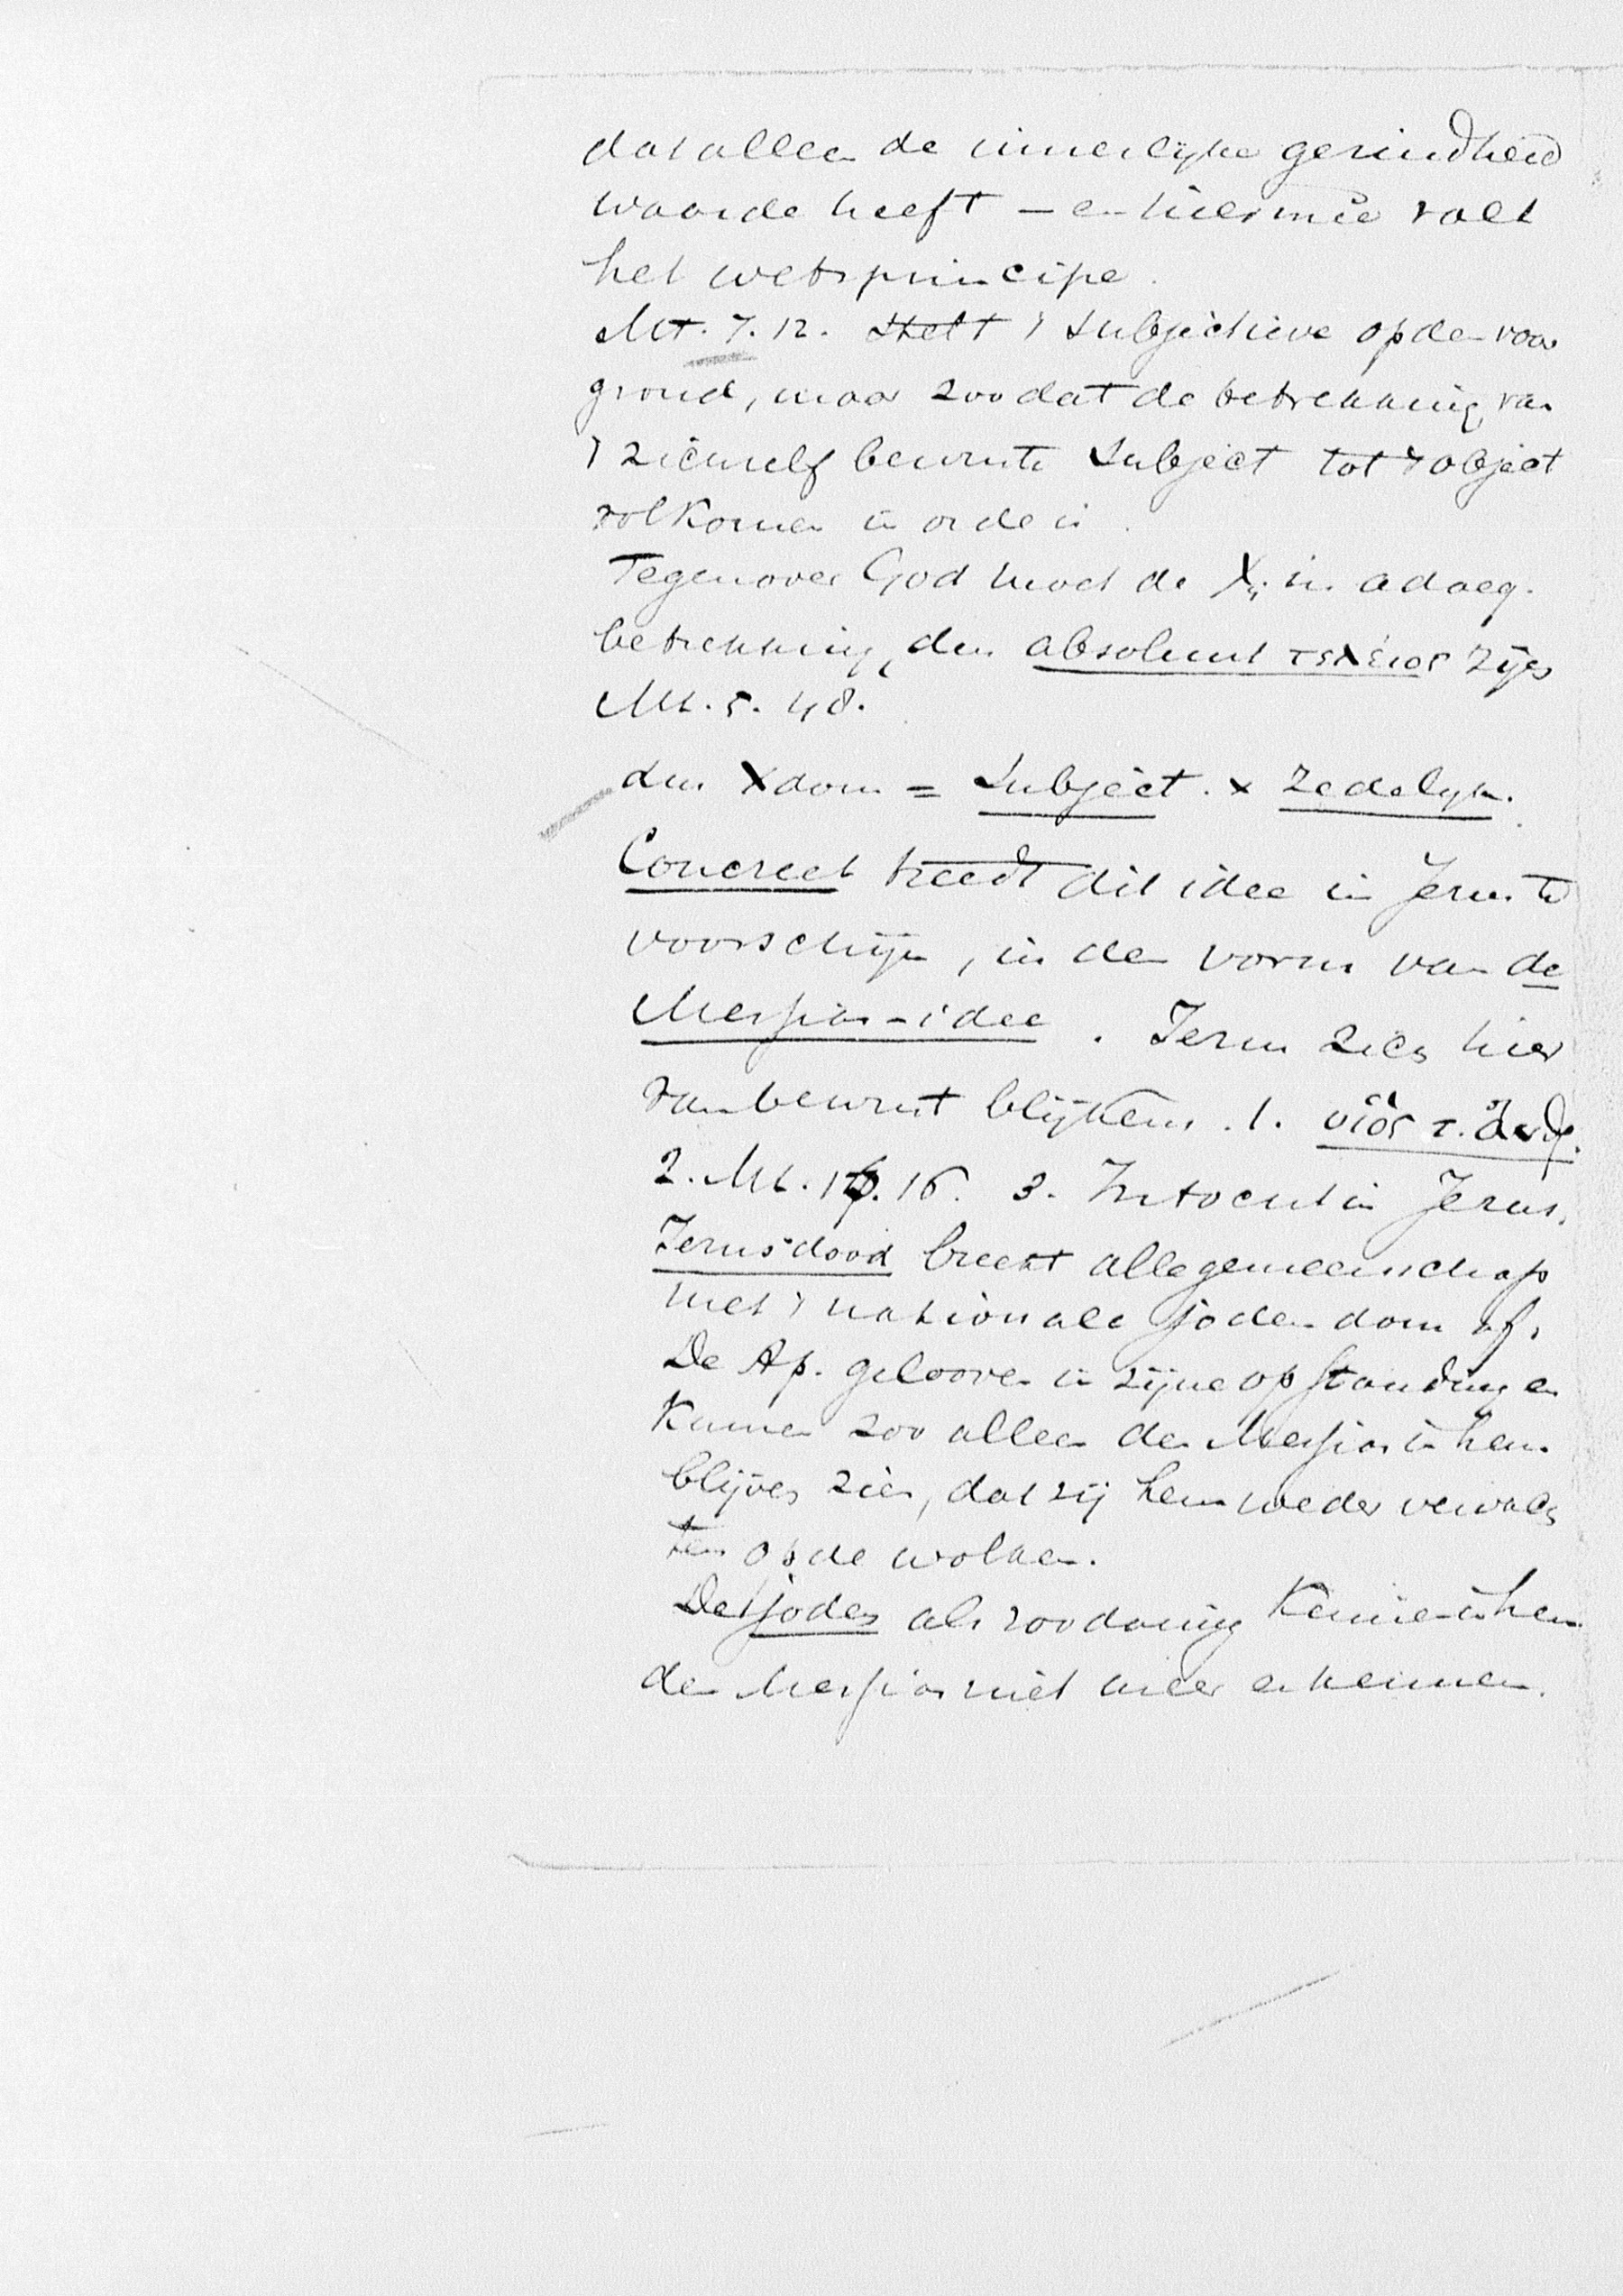 dat alleen de innerlijke gezindheid
waarde heeft – en hiermêe valt
het wetsprincipe.
Mt. 7. 12. stelt 't subjectieve op den voor
grond, maar zoo dat de betrekking van
't zichzelf bewuste subject tot 't object
volkomen in orde is.
Tegenover God moet de X in adaeq.
betrekking, dus absoluut τελειος zijn
Mt. 5. 48.
dus Xdom = Subject. × Zedelijk.
Concreet treedt dit idee in Jezus te
voorschijn, in den vorm van de
Messias-idee. Jezus zich hier
van bewust blijkens. 1. υἱὸς τ. ἀνθρ.
2. Mt. 16. 16. 3. Intocht in Jerus.
Jezus' dood breekt alle gemeenschap
met 't nationale jodendom af.
De Ap. gelooven in zijne opstanding en
kunnen zoo alleen den Messias in hem
blijven zien, dat zij hem weder verwach
ten op de wolken.
De joden als zoodanig konden in hem
den Messias niet meer erkennen.